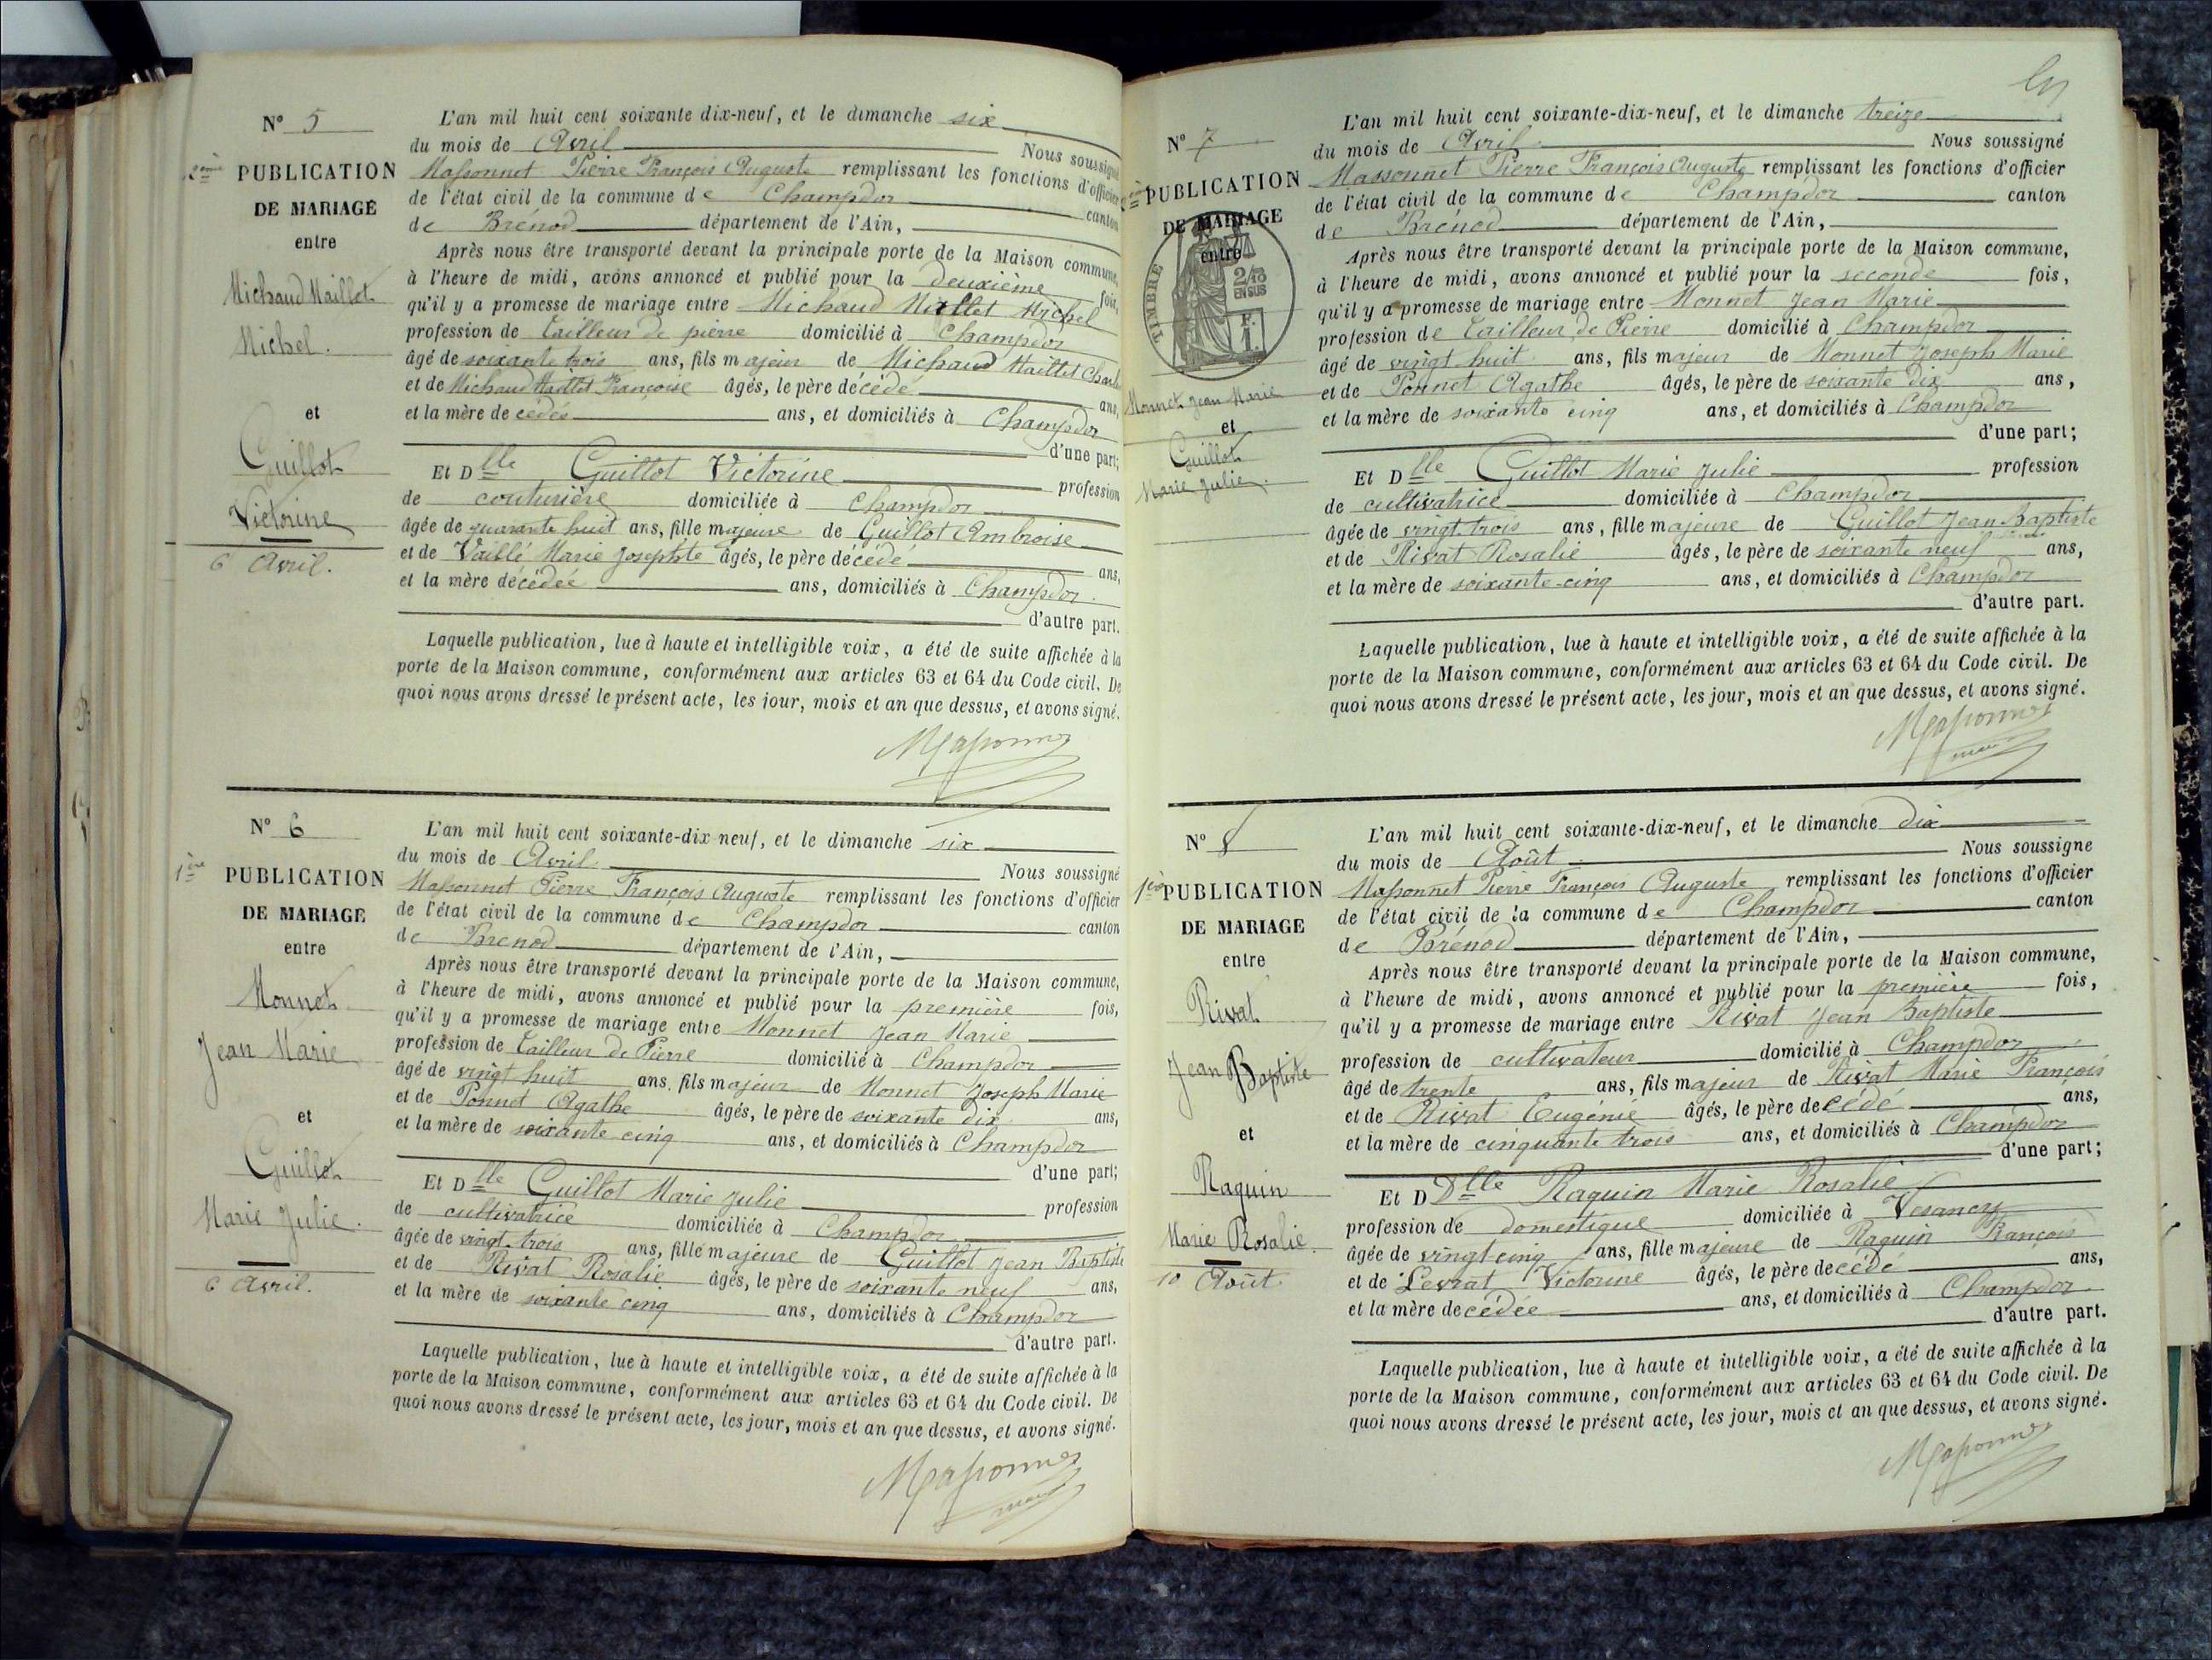 N° 5
2ème PUBLICATION
DE MARIAGE
entre
Michaud Maillet
Michel.
et
Guillot
Victorine
6 Avril.
L'an mil huit cent soixante dix-neuf, et le dimanche six
du mois de Avril Nous soussigné
Massonnet Pierre François Auguste remplissant les fonctions d'officier
de l'état civil de la commune de Champdor canton
de Brénod département de l'Ain,
Après nous être transporté devant la principale porte de la Maison commune,
à l'heure de midi, avons annoncé et publié pour la deuxième fois,
qu'il y a promesse de mariage entre Michaud Maillet Michel
profession de tailleur de pierre domicilié à Champdor
âgé de soixante trois ans, fils majeur de Michaud Maillet Charles
et de Michaud Maillet Françoise âgés, le père décédé ans,
et la mère de cédés ans, et domiciliés à Champdor
d'une part;
Et Dlle Guillot Victorine profession
de couturière domiciliée à Champdor
âgée de quarante huit ans, fille majeure de Guillot Ambroise
et de Vaillé Marie Josephte âgés, le père décédé ans,
et la mère décédée ans, domiciliés à Champdor.
d'autre part.
Laquelle publication, lue à haute et intelligible voix, a été de suite affichée à la
porte de la Maison commune, conformément aux articles 63 et 64 du Code civil. De
quoi nous avons dressé le présent acte, les jour, mois et an que dessus, et avons signé.
Massonnet
N° 6
1ère PUBLICATION
DE MARIAGE
entre
Monnet
Jean Marie
et
Guillot
Marie Julie.
6 Avril.
L'an mil huit cent soixante-dix neuf, et le dimanche six
du mois de Avril Nous soussigné
Massonnet Pierre François Auguste remplissant les fonctions d'officier
de l'état civil de la commune de Champdor canton
de Brenod département de l'Ain,
Après nous être transporté devant la principale porte de la Maison commune,
à l'heure de midi, avons annoncé et publié pour la première fois,
qu'il y a promesse de mariage entre Monnet Jean Marie
profession de tailleur de Pierre domicilié à Champdor
âgé de vingt huit ans, fils majeur de Monnet Joseph Marie
et de Ponnet Agathe âgés, le père de soixante dix ans,
et la mère de soixante cinq ans, et domiciliés à Champdor
d'une part;
Et Dlle Guillot Marie Julie profession
de cultivatrice domiciliée à Champdor
âgée de vingt trois ans, fille majeure de Guillot Jean Baptiste
et de Rivat Rosalie âgés, le père de soixante neuf ans,
et la mère de soixante cinq ans, domiciliés à Champdor
d'autre part.
Laquelle publication, lue à haute et intelligible voix, a été de suite affichée à la
porte de la Maison commune, conformément aux articles 63 et 64 du Code civil. De
quoi nous avons dressé le présent acte, les jour, mois et an que dessus, et avons signé.
Massonnet
maire
N° 7
2ème PUBLICATION
DE MARIAGE
entre
TIMBRE
2/10
EN SUS
F.
1.
Monnet Jean Marie
et
Guillot
Marie Julie.
L'an mil huit cent soixante-dix-neuf, et le dimanche treize
du mois de Avril Nous soussigné
Massonnet Pierre François Auguste remplissant les fonctions d'officier
de l'état civil de la commune de Champdor canton
de Brénod département de l'Ain,
Après nous être transporté devant la principale porte de la Maison commune,
à l'heure de midi, avons annoncé et publié pour la seconde fois,
qu'il y a promesse de mariage entre Monnet Jean Marie
profession de tailleur de Pierre domicilié à Champdor
âgé de vingt huit ans, fils majeur de Monnet Joseph Marie
et de Ponnet Agathe âgés, le père de soixante dix ans,
et la mère de soixante cinq ans, et domiciliés à Champdor
d'une part;
Et Dlle Guillot Marie Julie profession
de cultivatrice domiciliée à Champdor
âgée de vingt trois ans, fille majeure de Guillot Jean Baptiste
et de Rivat Rosalie âgés, le père de soixante neuf ans,
et la mère de soixante-cinq ans, et domiciliés à Champdor
d'autre part.
Laquelle publication, lue à haute et intelligible voix, a été de suite affichée à la
porte de la Maison commune, conformément aux articles 63 et 64 du Code civil. De
quoi nous avons dressé le présent acte, les jour, mois et an que dessus, et avons signé.
Massonnet
maire
N° 8
1ère PUBLICATION
DE MARIAGE
entre
Rivat
Jean Baptiste
et
Raquin
Marie Rosalie.
10 Août.
L'an mil huit cent soixante-dix-neuf, et le dimanche dix
du mois de Août Nous soussigné
Massonnet Pierre François Auguste remplissant les fonctions d'officier
de l'état civil de la commune de Champdor canton
de Brénod département de l'Ain,
Après nous être transporté devant la principale porte de la Maison commune,
à l'heure de midi, avons annoncé et publié pour la première fois,
qu'il y a promesse de mariage entre Rivat Jean Baptiste
profession de cultivateur domicilié à Champdor
âgé de trente ans, fils majeur de Rivat Marie François
et de Rivat Eugénie âgés, le père de cédé ans,
et la mère de cinquante trois ans, et domiciliés à Champdor
d'une part;
Et D Dlle Raquin Marie Rosalie
profession de domestique domiciliée à Vesancy
âgée de vingt-cinq ans, fille majeure de Raquin François
et de Levrat Victorine âgés, le père de cédé ans,
et la mère de cédée ans, et domiciliés à Champdor
d'autre part.
Laquelle publication, lue à haute et intelligible voix, a été de suite affichée à la
porte de la Maison commune, conformément aux articles 63 et 64 du Code civil. De
quoi nous avons dressé le présent acte, les jour, mois et an que dessus, et avons signé.
Massonnet